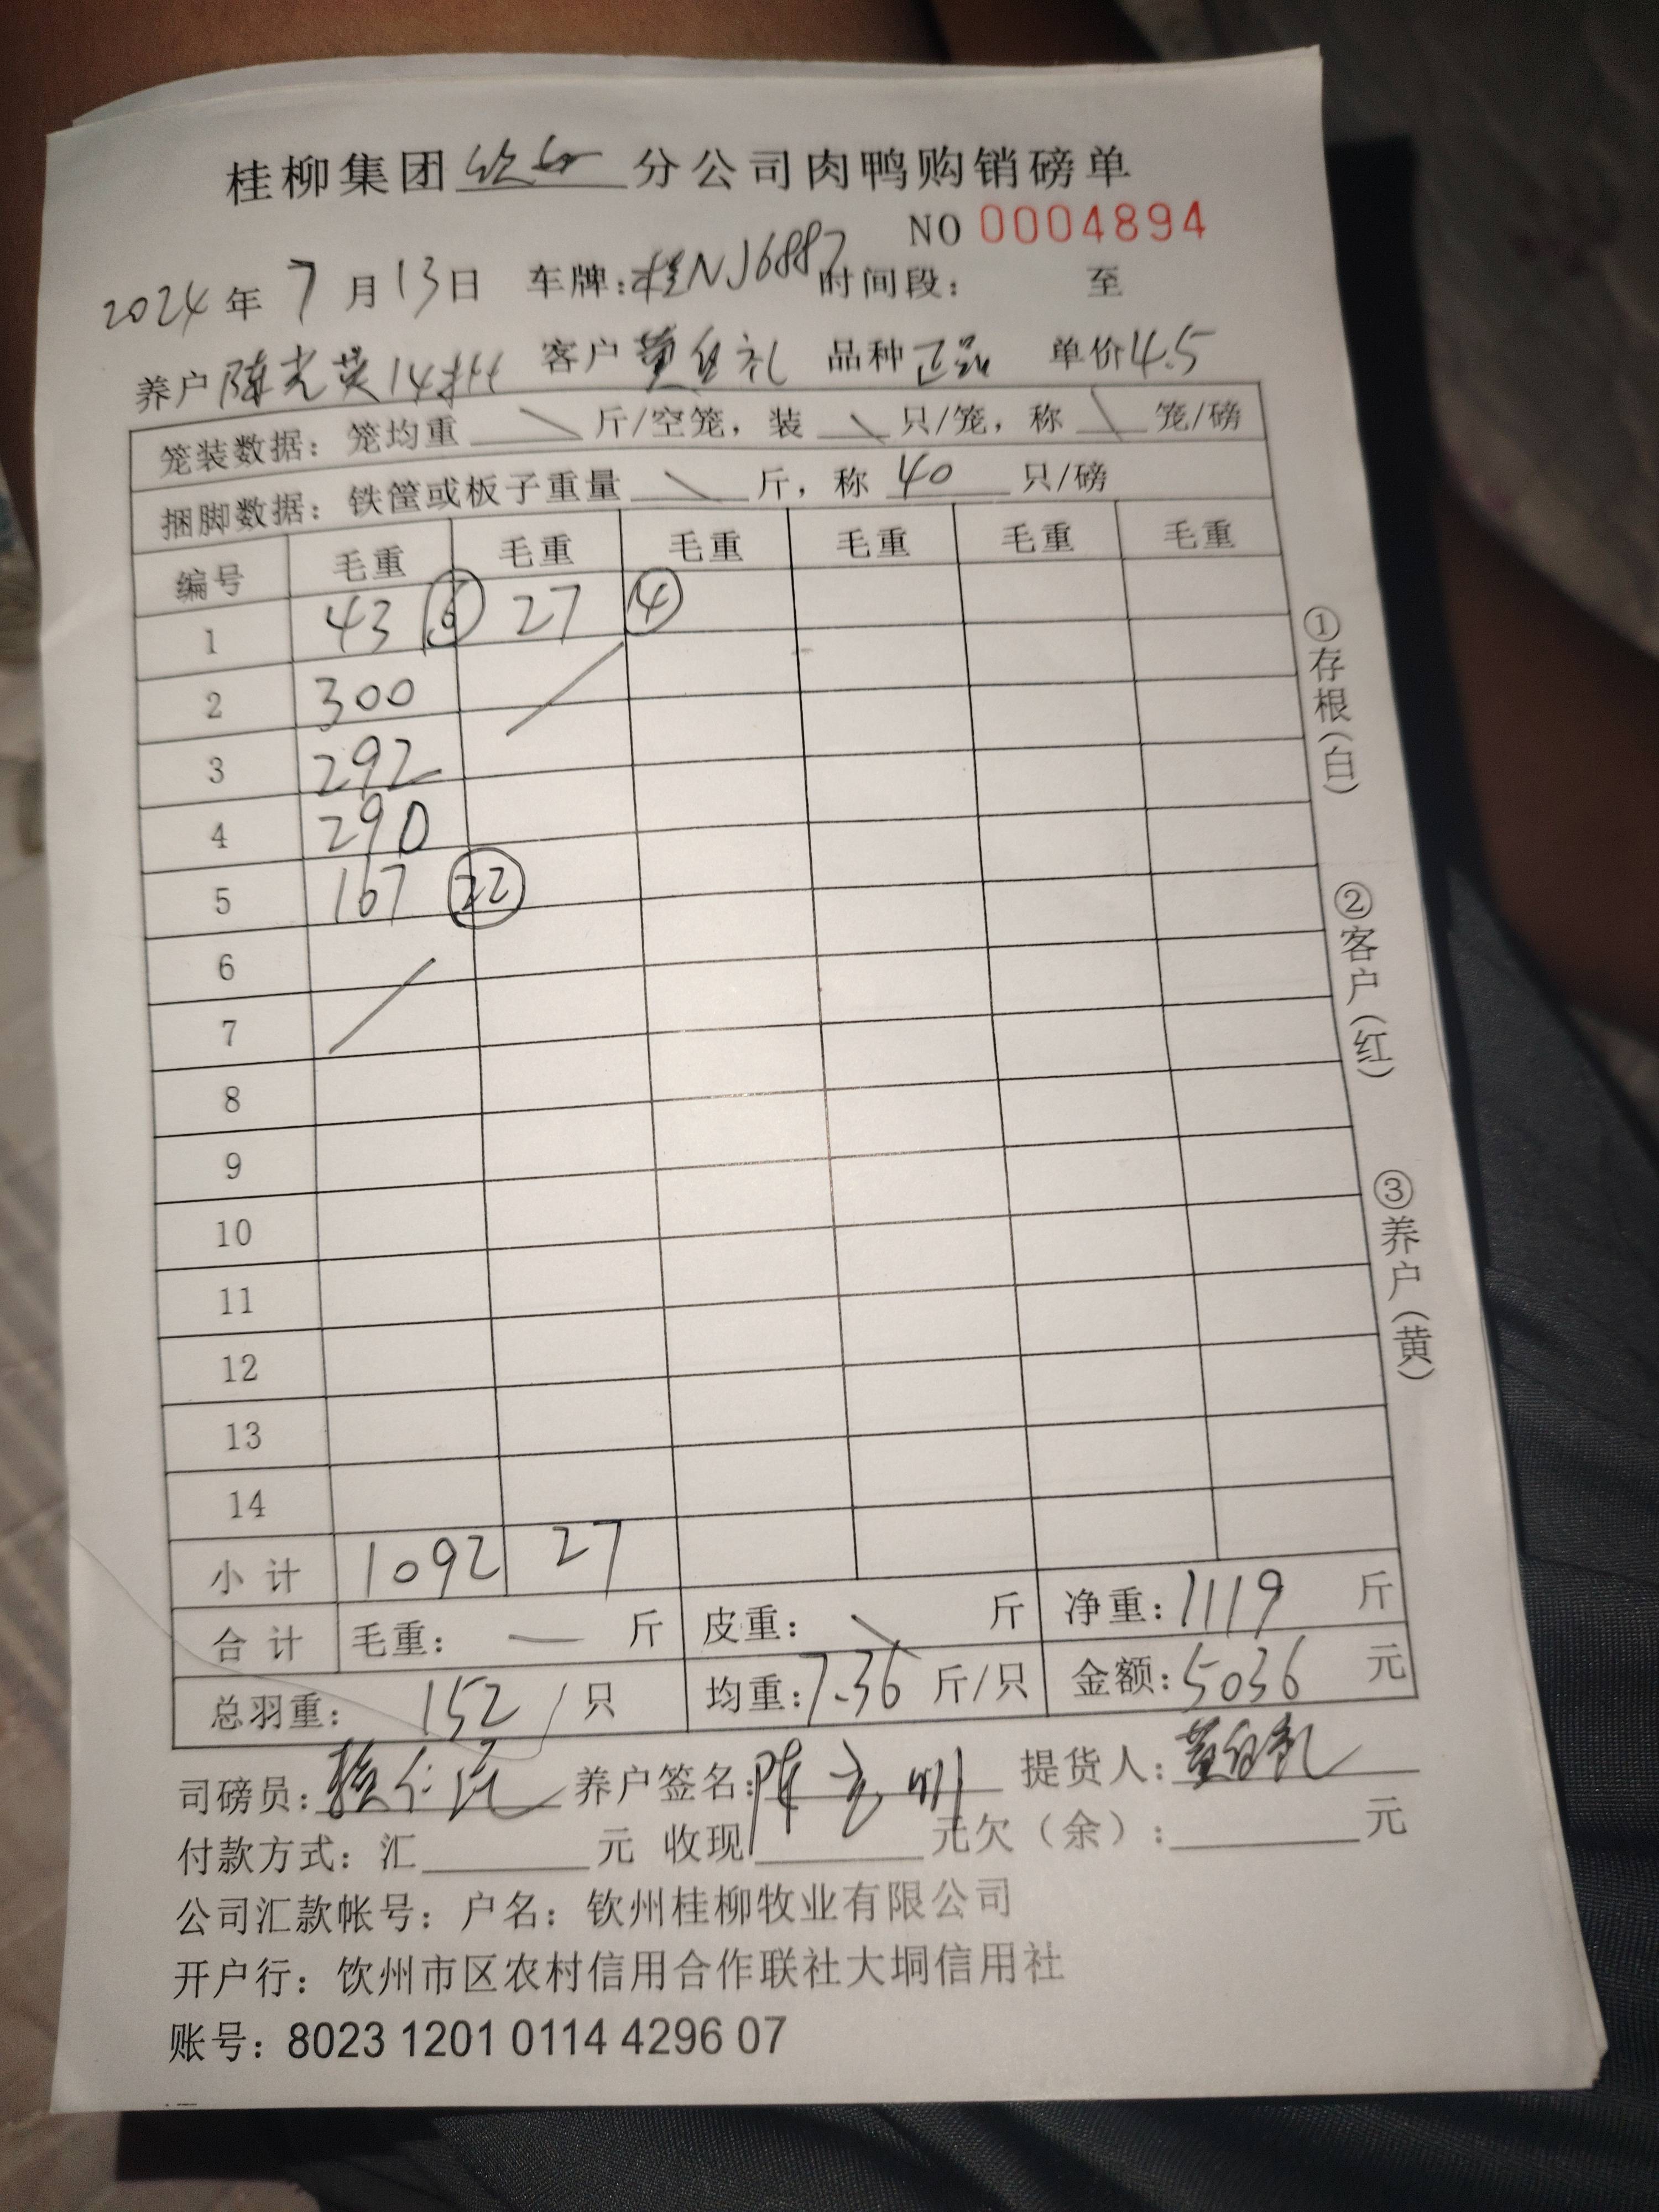 桂柳集团钦州分公司肉鸭购销磅单
NO 0004894
2024年7月13日 车牌:桂NJ6887 时间段: 至
养户陈光英14批 客户黄 礼 品种正品 单价4.5
笼装数据：笼均重 \ 斤/空笼，装 \ 只/笼，称 \ 笼/磅
捆脚数据：铁筐或板子重量 \ 斤，称 40 只/磅
编号 毛重 毛重 毛重 毛重 毛重 毛重
1 43 ⑥ 27 ④
2 300
3 292
4 290
5 167 ㉒
6
7
8
9
10
11
12
13
14
小计 1092 27
合计 毛重：— 斤 皮重：\ 斤 净重：1119 斤
总羽重：152/只 均重：7.36 斤/只 金额：5036 元
司磅员： 养户签名：陈 明 提货人：黄 礼
付款方式：汇 元 收现 元欠（余）： 元
公司汇款帐号：户名：钦州桂柳牧业有限公司
开户行：饮州市区农村信用合作联社大垌信用社
账号：8023 1201 0114 4296 07
①存根(白)
②客户(红)
③养户(黄)